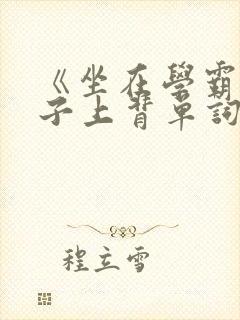 《坐在學霸
子上背單詞
程立雪